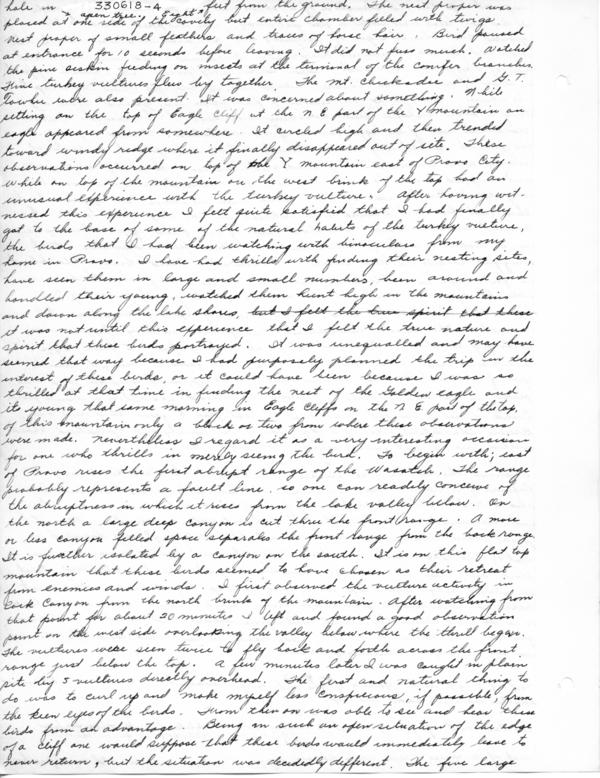 330618-4
hole in a open tree, eight feet from the ground. The nest proper was
placed at one side of the cavity but entire chamber filled with twigs.
Nest proper of small feathers and traces of horse hair. Bird paused
at entrance for 10 seconds before leaving. It did not fuss much. Watched
the pine siskin feeding on insects at the terminal of the conifer branches.
Nine turkey vultures flew by together. The Mt. Chickadee and G. T.
Towhee were also present. It was concerned about something. While
sitting on the top of Eagle Cliff at the N E part of the Y mountain an
eagle appeared from somewhere. It circled high and then trended
toward windy ridge where it finally disappeared out of site. These
observations occurred on top of the Y mountain east of Provo City.
While on top of the mountain on the west brink of the top had an
unusual experience with the turkey vulture. After having wit-
nessed this experience I felt quite satisfied that I had finally
got to the base of some of the natural habits of the turkey vulture,
the birds that I had been watching with binoculars from my
home in Provo. I have had thrills with finding their nesting sites,
have seen them in large and small numbers, been around and
handled their young, watched them hunt high in the mountains
and down along the lake shores, but I felt the true spirit that these
it was not until this experience that I felt the true nature and
spirit that these birds portrayed. It was unequalled and may have
seemed that way because I had purposely planned the trip in the
interest of these birds, or it could have been because I was so
thrilled at that time in finding the nest of the Golden eagle and
its young that same morning in Eagle Cliffs on the N E part of the top,
of this mountain only a block or two from where these observations
were made. Nevertheless I regard it as a very interesting occasion
for one who thrills in merely seeing the bird. To begin with; east
of Provo rises the first abrupt range of the Wasatch. The range
probably represents a fault line, so one can readily conceive of
the abruptness in which it rises from the lake valley below. On
the north a large deep canyon is cut thru the front range. A more
or less canyon filled space separates the front range from the back range.
It is further isolated by a canyon on the south. It is on this flat top
mountain that these birds seemed to have chosen as their retreat
from enemies and winds. I first observed the vulture activity in
Rock Canyon from the north brink of the mountain. After watching from
that point for about 20 minutes I left and found a good observation
point on the west side overlooking the valley below where the thrill began.
The vultures were seen twice to fly back and forth across the front
range just below the top. A few minutes later I was caught in plain
site by 5 vultures directly overhead. The first and natural thing to
do was to curl up and make myself less conspicuous, if possible, from
the keen eyes of the birds. From then on was able to see and hear these
birds from an advantage. Being in such an open situation of the edge
of a cliff one would suppose that these birds would immediately leave to
never return, but the situation was decidedly different. The five large